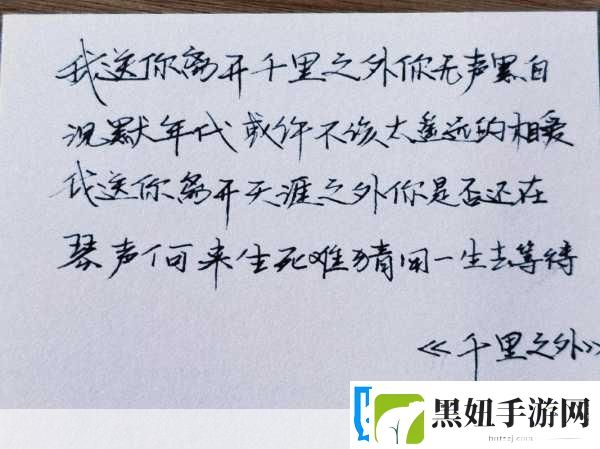 我送你离开千里之外你无声黑白
沉默年代或许不该太遥远的相爱
我送你离开天涯之外你是否还在
琴声何来生死难猜用一生去等待
《千里之外》
黑妞手游网
hntzzj.com